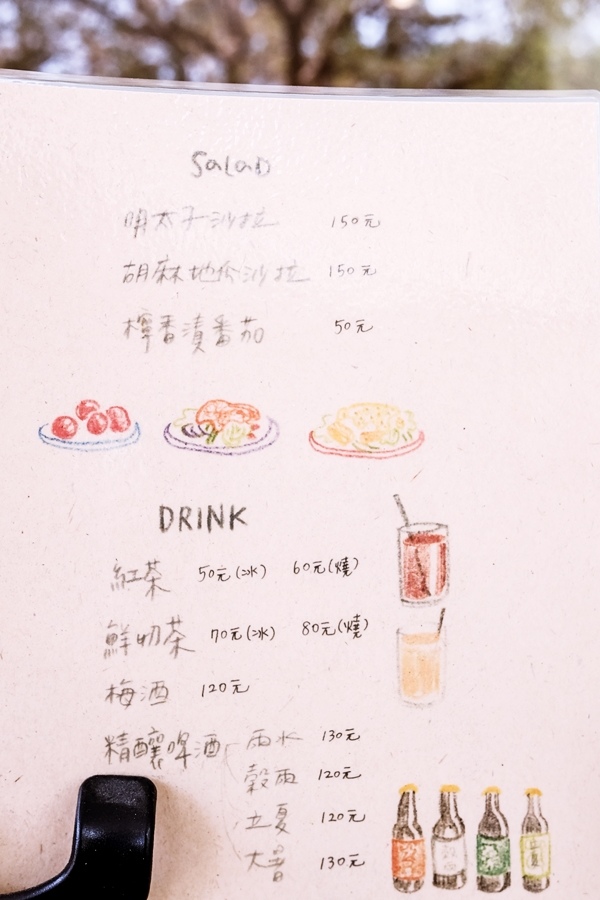 SalaD
明太子沙拉 150元
胡麻地瓜沙拉 150元
檸香漬番茄 50元
DRINK
紅茶 50元(冰) 60元(燒)
鮮奶茶 70元(冰) 80元(燒)
梅酒 120元
精釀啤酒 雨水 130元
穀雨 120元
立夏 120元
大暑 130元